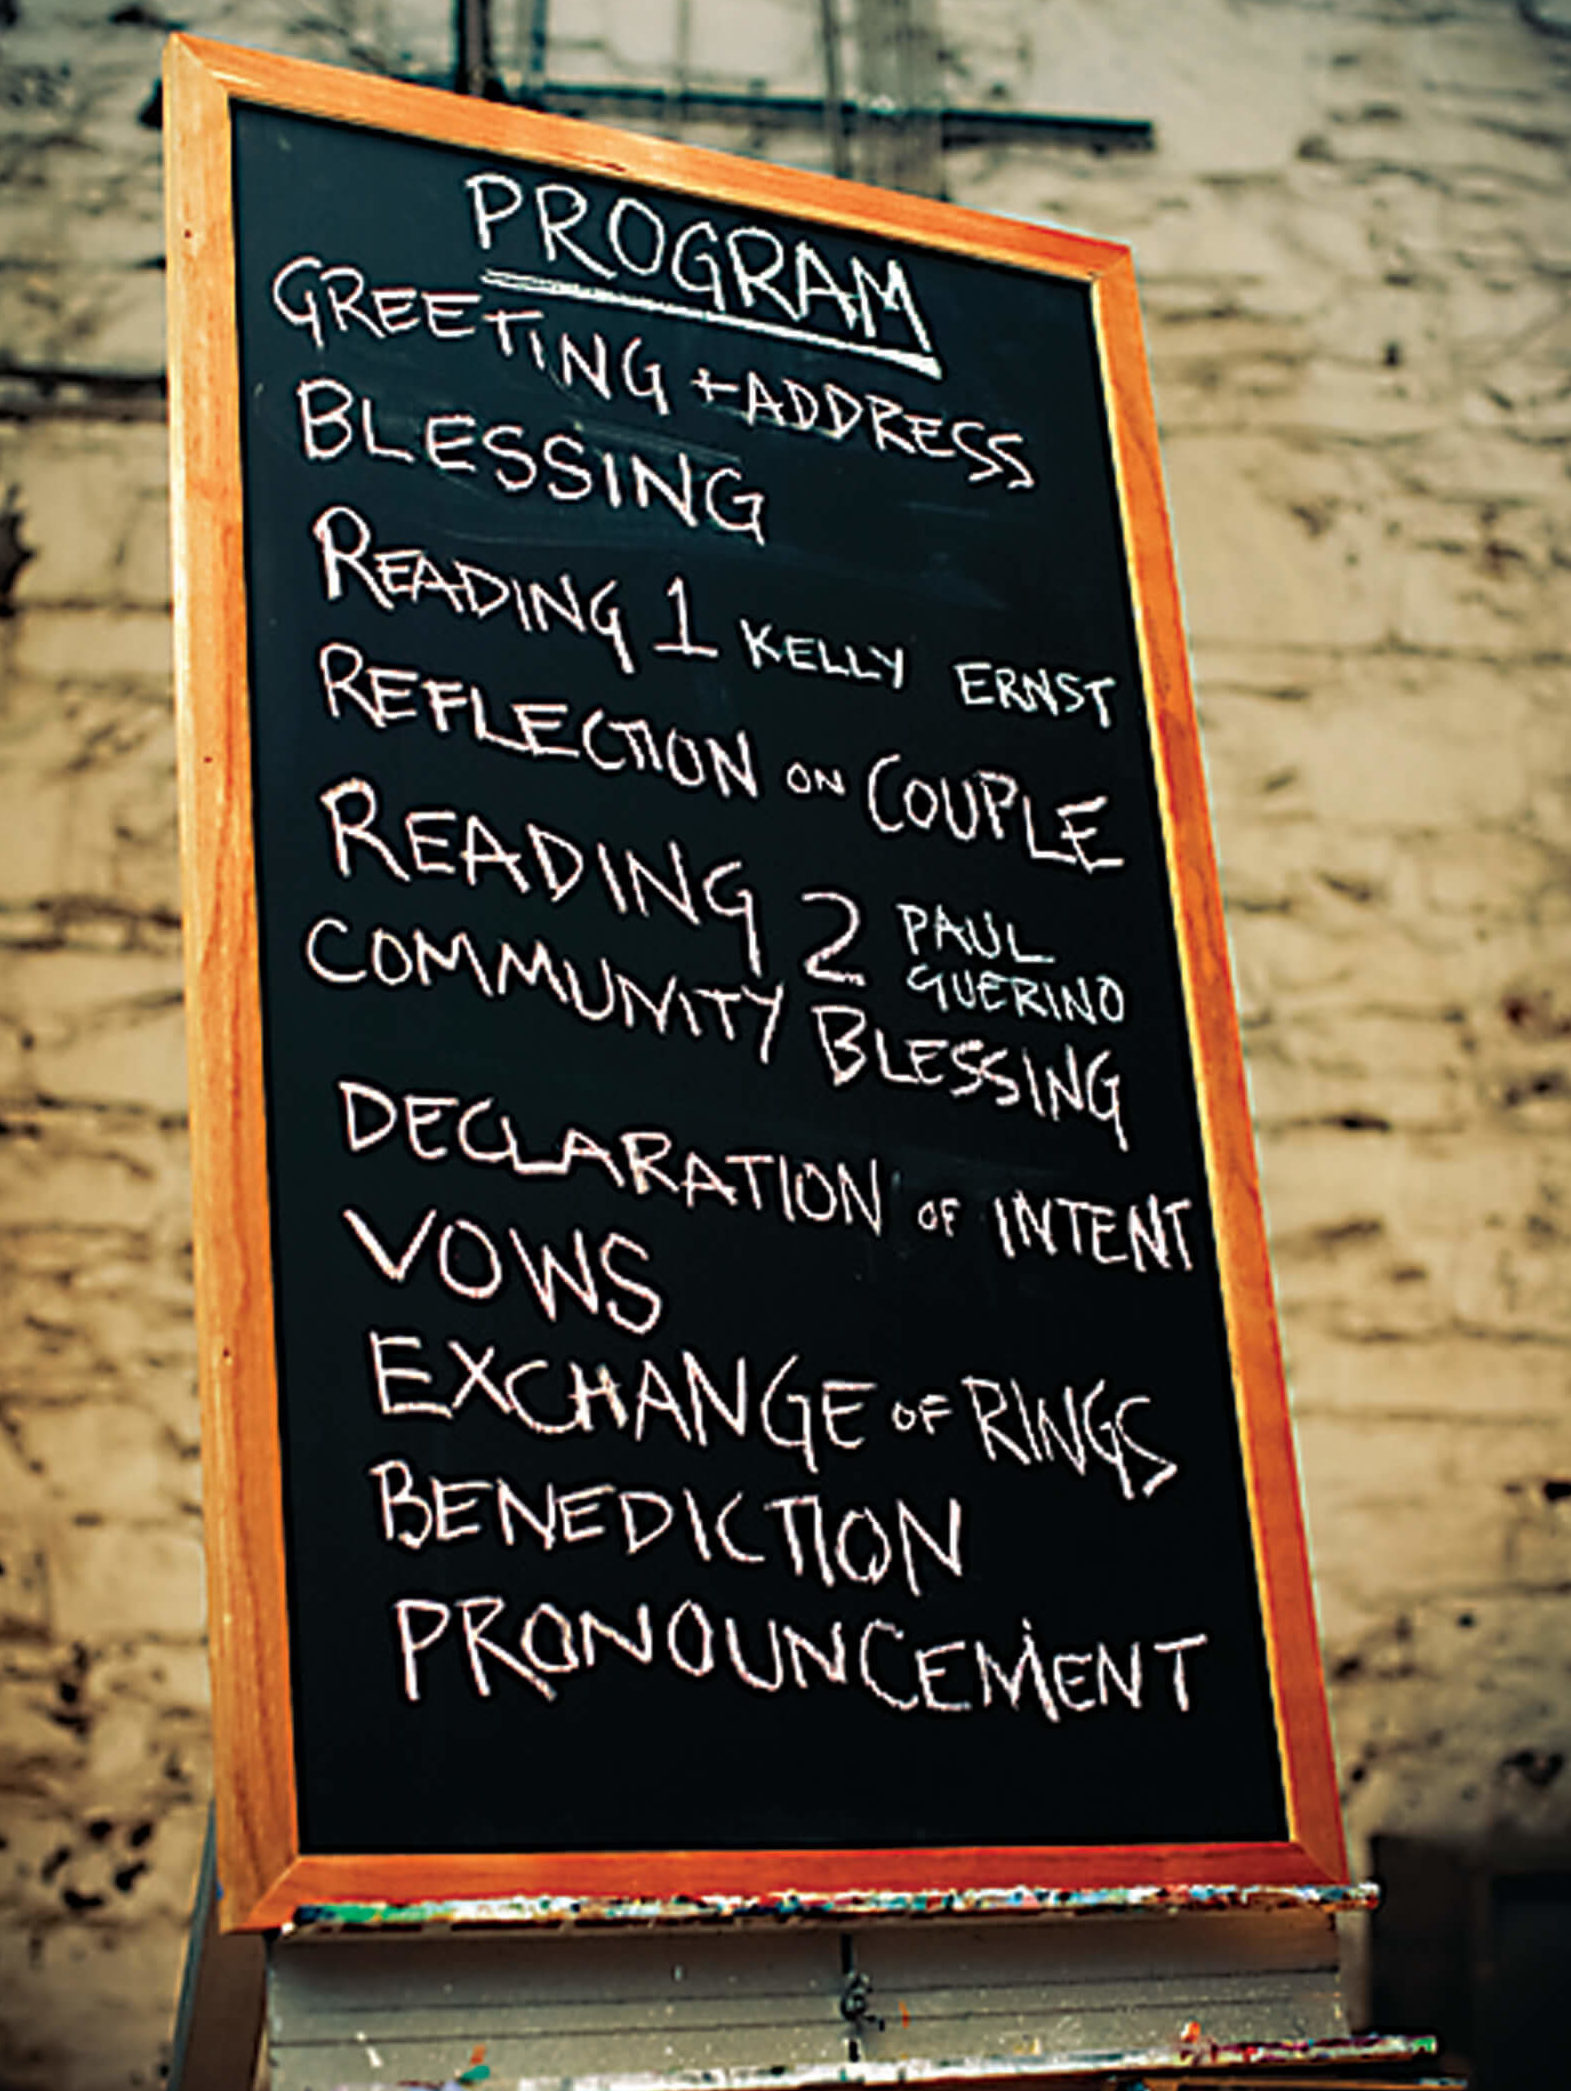 PROGRAM
GREETING + ADDRESS
BLESSING
READING 1 KELLY ERNST
REFLECTION ON COUPLE
READING 2 PAUL
GUERINO
COMMUNITY BLESSING
DECLARATION OF INTENT
VOWS
EXCHANGE OF RINGS
BENEDICTION
PRONOUNCEMENT